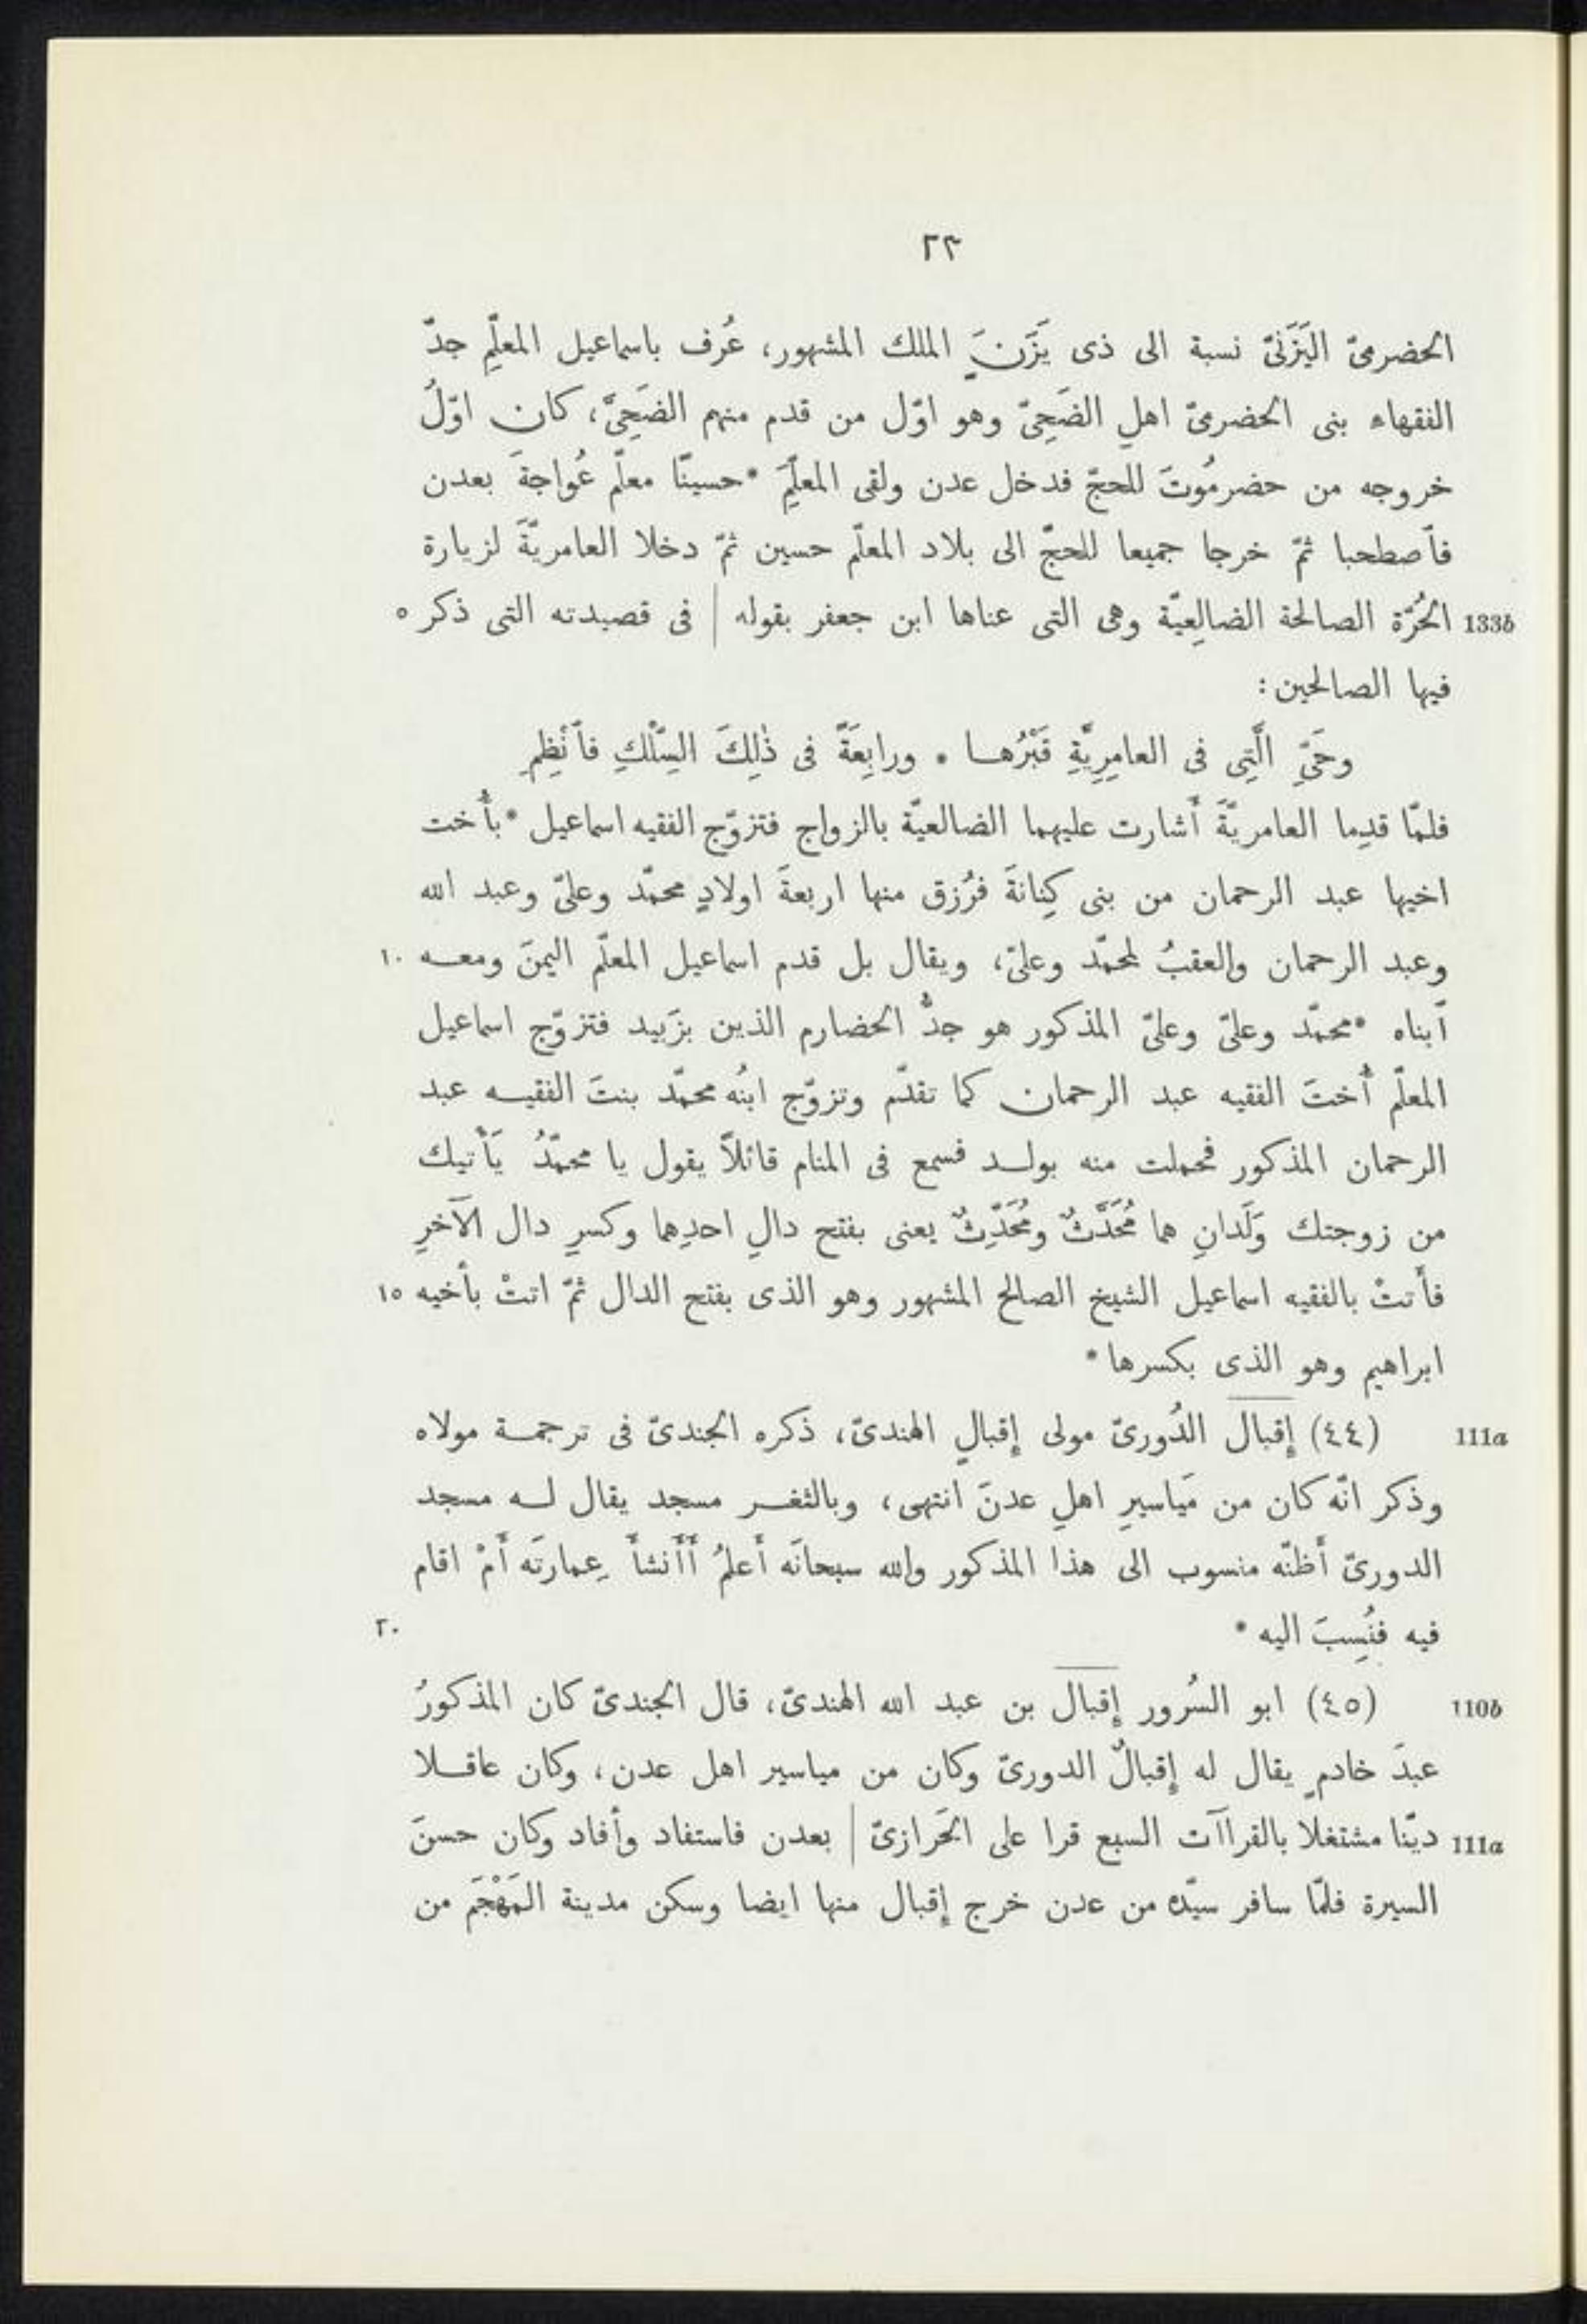 ٢٣
الحضرمىّ اليَزَنىّ نسبة الى ذى يَزَنَ الملك المشهور، عُرف باسماعيل المعلّمِ جدّ
الفقهاء بنى الحضرمىّ اهلِ الضَحِىّ وهو اوّل من قدم منهم الضَحِىَّ، كان اوّلُ
خروجه من حضرمُوتَ للحجّ فدخل عدن ولقى المعلّمَ *حسينًا معلّم عُواجةَ بعدن
فٱصطحبا ثمّ خرجا جميعا للحجّ الى بلاد المعلّم حسين ثمّ دخلا العامريّةَ لزيارة
133b الحُرّة الصالحة الضالِعيّة وهى التى عناها ابن جعفر بقوله | فى قصيدته التى ذكر ٥
فيها الصالحين:
وحَىِّ الَّتِى فى العامِرِيَّةِ قَبْرُهـا * ورابِعَةً فى ذٰلِكَ السِّلْكِ فٱنْظِمِ
فلمّا قدِما العامريّةَ أشارت عليهما الضالعيّة بالزواج فتزوّج الفقيه اسماعيل *بأخت
اخيها عبد الرحمان من بنى كِنانةَ فرُزق منها اربعةَ اولادٍ محمّد وعلىّ وعبد الله
وعبد الرحمان والعقبُ لمحمّد وعلىّ، ويقال بل قدم اسماعيل المعلّم اليمنَ ومعـه ١٠
ٱبناه *محمّد وعلىّ وعلىّ المذكور هو جدُّ الحضارم الذين بزَبيد فتزوّج اسماعيل
المعلّم أختَ الفقيه عبد الرحمان كما تقدّم وتزوّج ابنُه محمّد بنتَ الفقيـه عبد
الرحمان المذكور فحملت منه بولـد فسمع فى المنام قائلاً يقول يا محمّدُ يَأتيك
من زوجتك وَلَدانِ هما مُحَدَّثٌ ومُحَدِّثٌ يعنى بفتح دالِ احدِهما وكسرِ دال الآخرِ
فأتتْ بالفقيه اسماعيل الشيخ الصالح المشهور وهو الذى بفتح الدال ثمّ اتتْ بأخيه ١٥
ابراهيم وهو الذى بكسرها *
111a (٤٤) إقبال الدُورىّ مولى إقبالٍ الهندىّ، ذكره الجندىّ فى ترجمـة مولاه
وذكر انّه كان من مَياسيرِ اهلِ عدنَ انتهى، وبالثغـر مسجد يقال لـه مسجد
الدورىّ أظنّه منسوب الى هذا المذكور والله سبحانَه أعلمُ أَأَنشأَ عِمارتَه أمْ اقام
فيه فنُسِبَ اليه * ٢٠
110b (٤٥) ابو السُرور إقبال بن عبد الله الهندىّ، قال الجندىّ كان المذكورُ
عبدَ خادمٍ يقال له إقبالٌ الدورىّ وكان من مياسير اهل عدن، وكان عاقـلا
111a ديّنا مشتغلا بالقراآت السبع قرا على الحَرازىّ | بعدن فاستفاد وأفاد وكان حسنَ
السيرة فلمّا سافر سيّده من عدن خرج إقبال منها ايضا وسكن مدينة المَهْجَم من